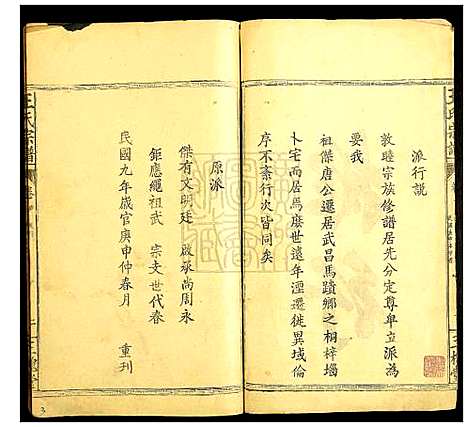 王氏宗譜
派行説
敦睦宗族修譜居先分定尊卑立派為
要我
祖傑唐公遷居武昌馬蹟鄉之桐梓堰
卜宅而居焉麼世遠年湮遷徙異域倫
序不紊行次皆同矣
原派
傑有文明廷　啟承尚周永
鉅應繩祖武　宗支世代春
民國九年歲官庚申仲春月　重刊
王氏宗譜
3